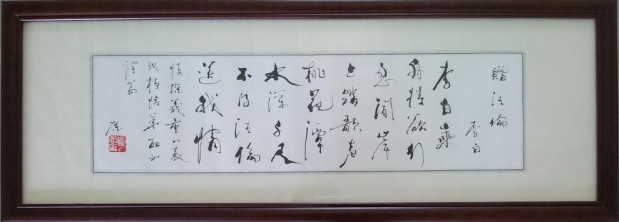 贈汪倫
李白
李白乘
舟将欲行
忽聞岸
上踏歌声
桃花潭
水深千尺
不及汪倫
送我情
情深義重